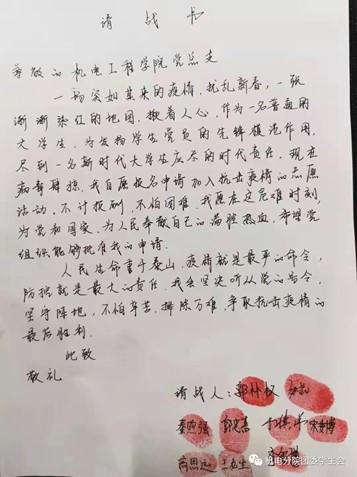 请战书
尊敬的机电工程学院党总支
一场突如其来的疫情,扰乱新春,一张
渐渐染红的地图,揪着人心,作为一名普通的
大学生,为发扬学生党员的先锋模范作用,
尽到一名新时代大学生应尽的时代责任,现在
病毒肆掠,我自愿报名申请加入抗击疫情的志愿
活动,不计报酬,不怕困难,我愿在这危难时刻,
为党和国家,为人民奉献自己的满腔热血,希望党
组织能够批准我的申请.
人民生命重于泰山,疫情就是最严的命令,
防控就是最大的责任,我会坚决听从党的号令,
坚守阵地,不怕辛苦,排除万难,争取抗击疫情的
最后胜利.
此致
敬礼
请战人:
机电分院团委学生会